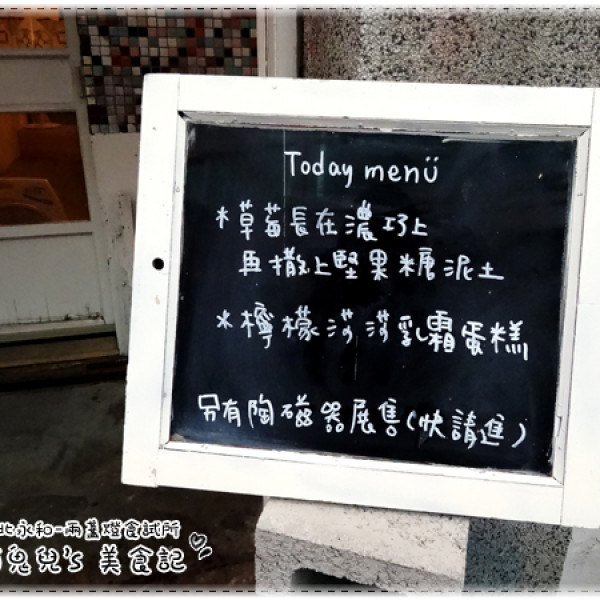 Today menü
*草莓長在濃巧上
再撒上堅果糖泥土
*檸檬莎莎乳霜蛋糕
另有陶磁器展售(快請進)
北永和-兩盞燈食試所
兔兒's 美食記